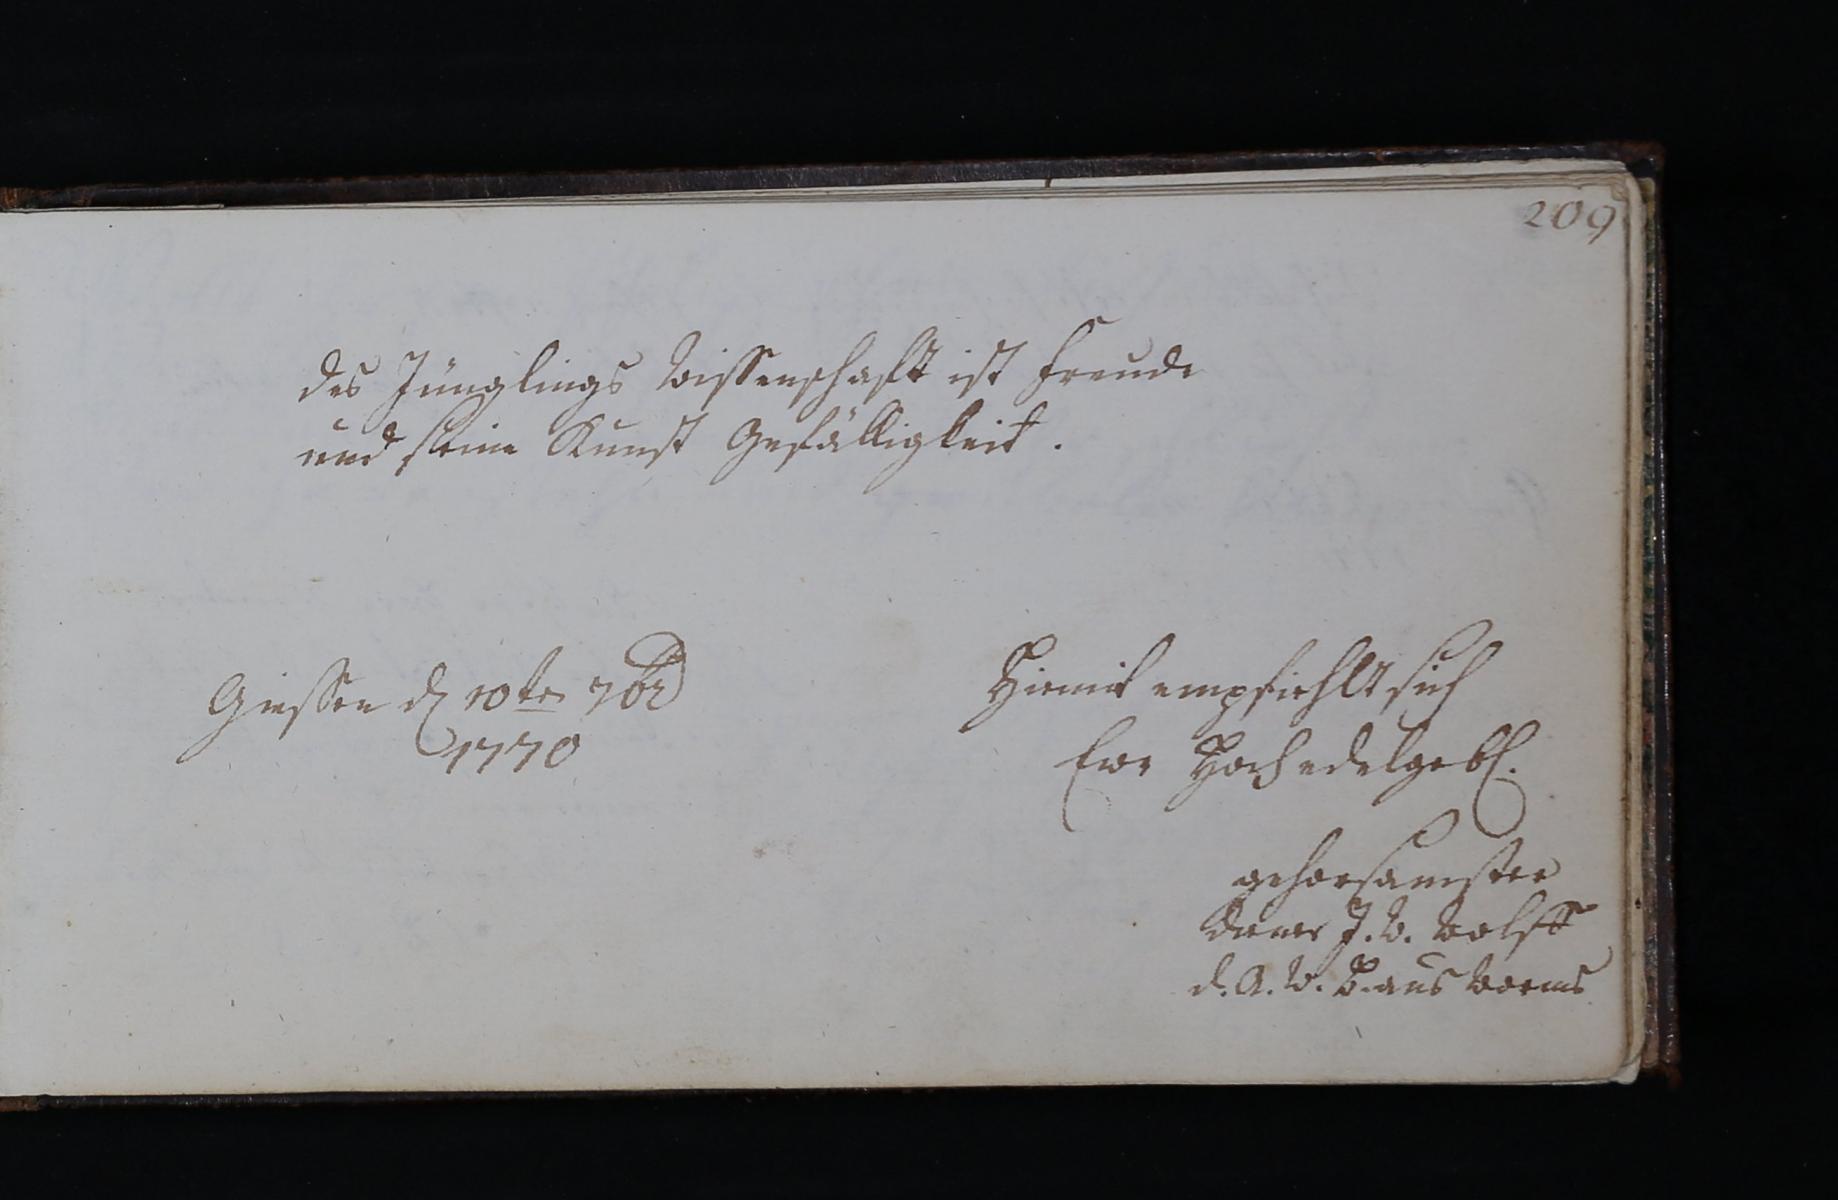 209
des Jünglings Wissenschaft ist Freude
und seine Kunst Gefälligkeit.
Giessen d 10ten 7br
1770
Hiemit empfiehlt sich
Ewr Hochedelgebl.
gehorsamster
Diener J. W. Wolff
d. G. W. B. aus Worms